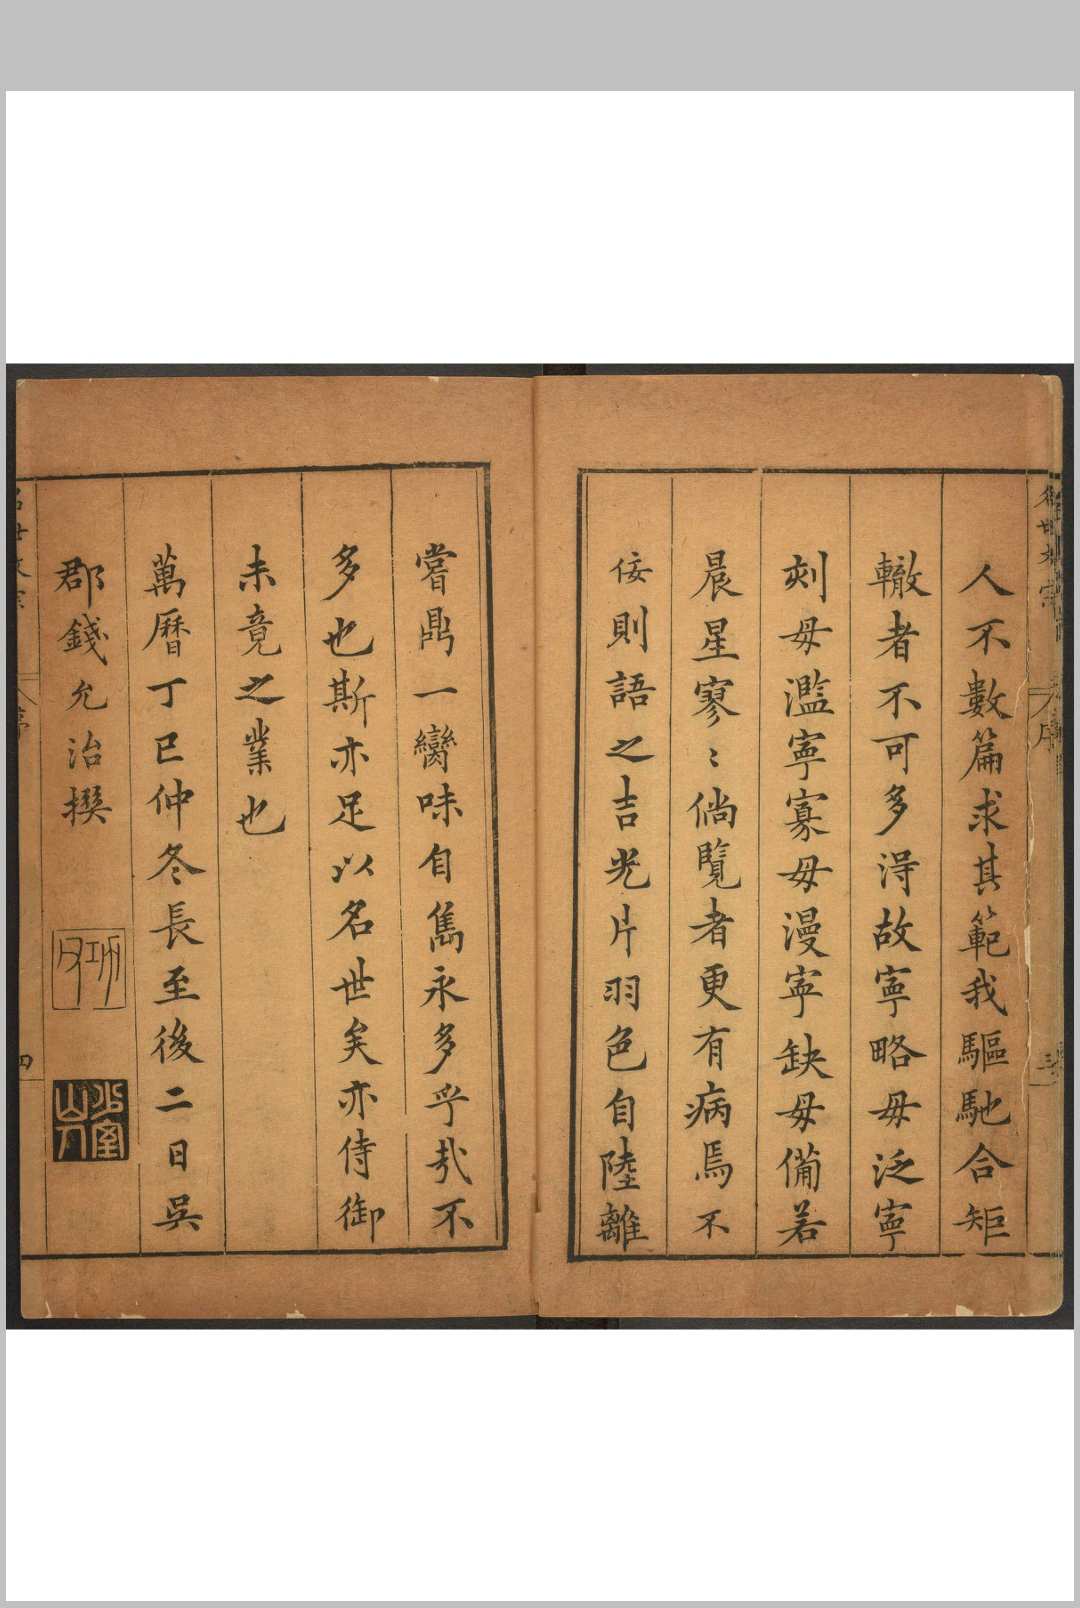 人不數篇求其範我驅馳合矩
轍者不可多得故寧略毋泛寧
刻毋濫寧寡毋漫寧缺毋備若
晨星寥〻倘覽者更有病焉不
佞則語之吉光片羽色自陸離
嘗鼎一臠味自雋永多乎哉不
多也斯亦足以名世矣亦侍御
未竟之業也
萬曆丁巳仲冬長至後二日吳
郡錢允治撰